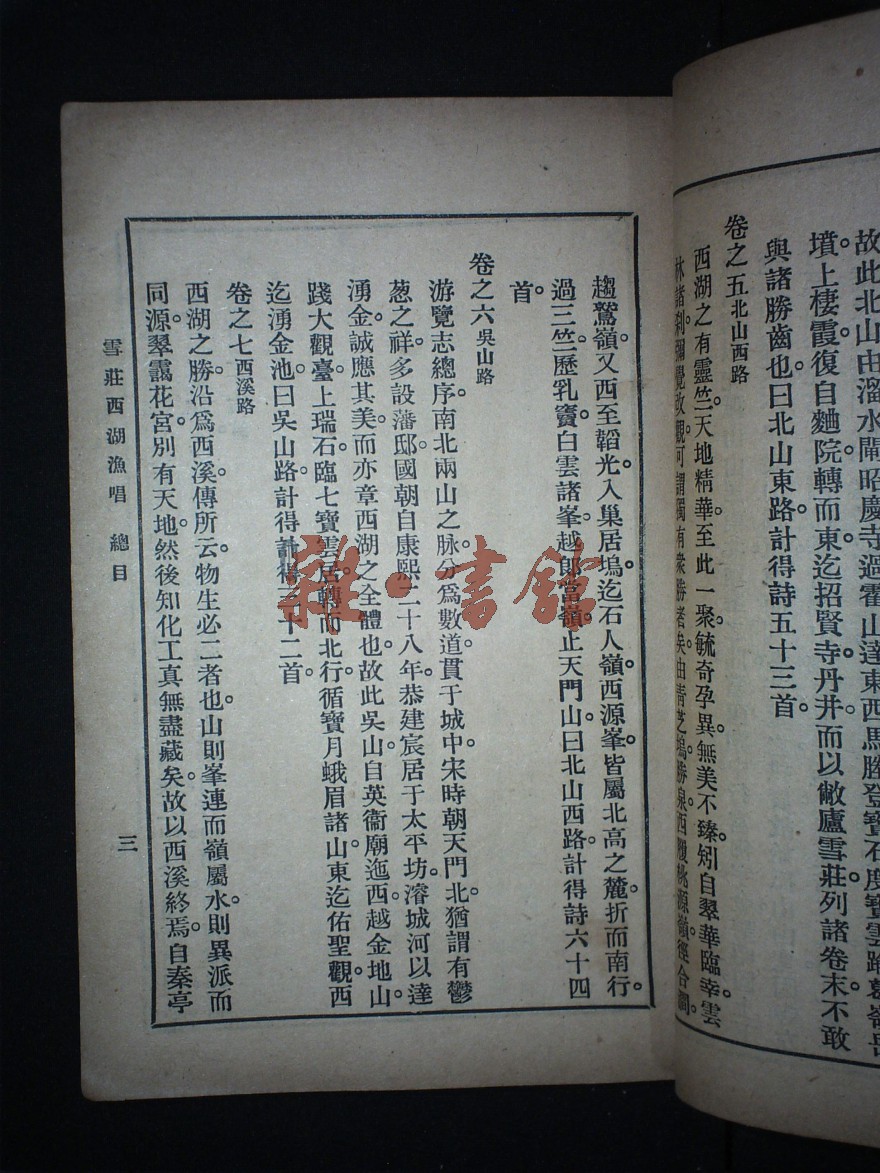 故此北山由溜水閘昭慶寺過霍山達東西馬塍登寶石度寶雲
墳上棲霞復自麯院轉而東迄招賢寺丹井而以敝廬雪莊列諸卷末不敢
與諸勝齒也曰北山東路計得詩五十三首。
卷之五北山西路
西湖之有靈竺天地精華至此一聚毓奇孕異無美不臻矧自翠華臨幸雲
林諸刹彌覺改觀可謂獨有衆勝者矣由青芝塢勝泉西履桃源嶺徑合澗。
趨鷲嶺。又西至韜光。入巢居塢。迄石人嶺。西源峯。皆屬北高之麓。折而南行。
過三竺。歷乳竇白雲諸峯。越郎當嶺。止天門山。曰北山西路。計得詩六十四
首。
卷之六吳山路
游覽志總序。南北兩山之脉。分爲數道。貫于城中。宋時朝天門北。猶謂有鬱
葱之祥。多設藩邸。國朝自康熙二十八年。恭建宸居于太平坊。濬城河以達
湧金。誠應其美。而亦章西湖之全體也。故此吳山自英衞廟迤西越金地山。
踐大觀臺。上瑞石。臨七寶雲居。轉而北行。循寶月蛾眉諸山。東迄佑聖觀。西
迄湧金池。曰吳山路。計得詩 十二首。
卷之七西溪路
西湖之勝。沿爲西溪。傳所云。物生必二者也。山則峯連而嶺屬。水則異派而
同源。翠靄花宮。別有天地。然後知化工真無盡藏矣。故以西溪終焉。自秦亭
雪莊西湖漁唱 總目
三
雜·書館